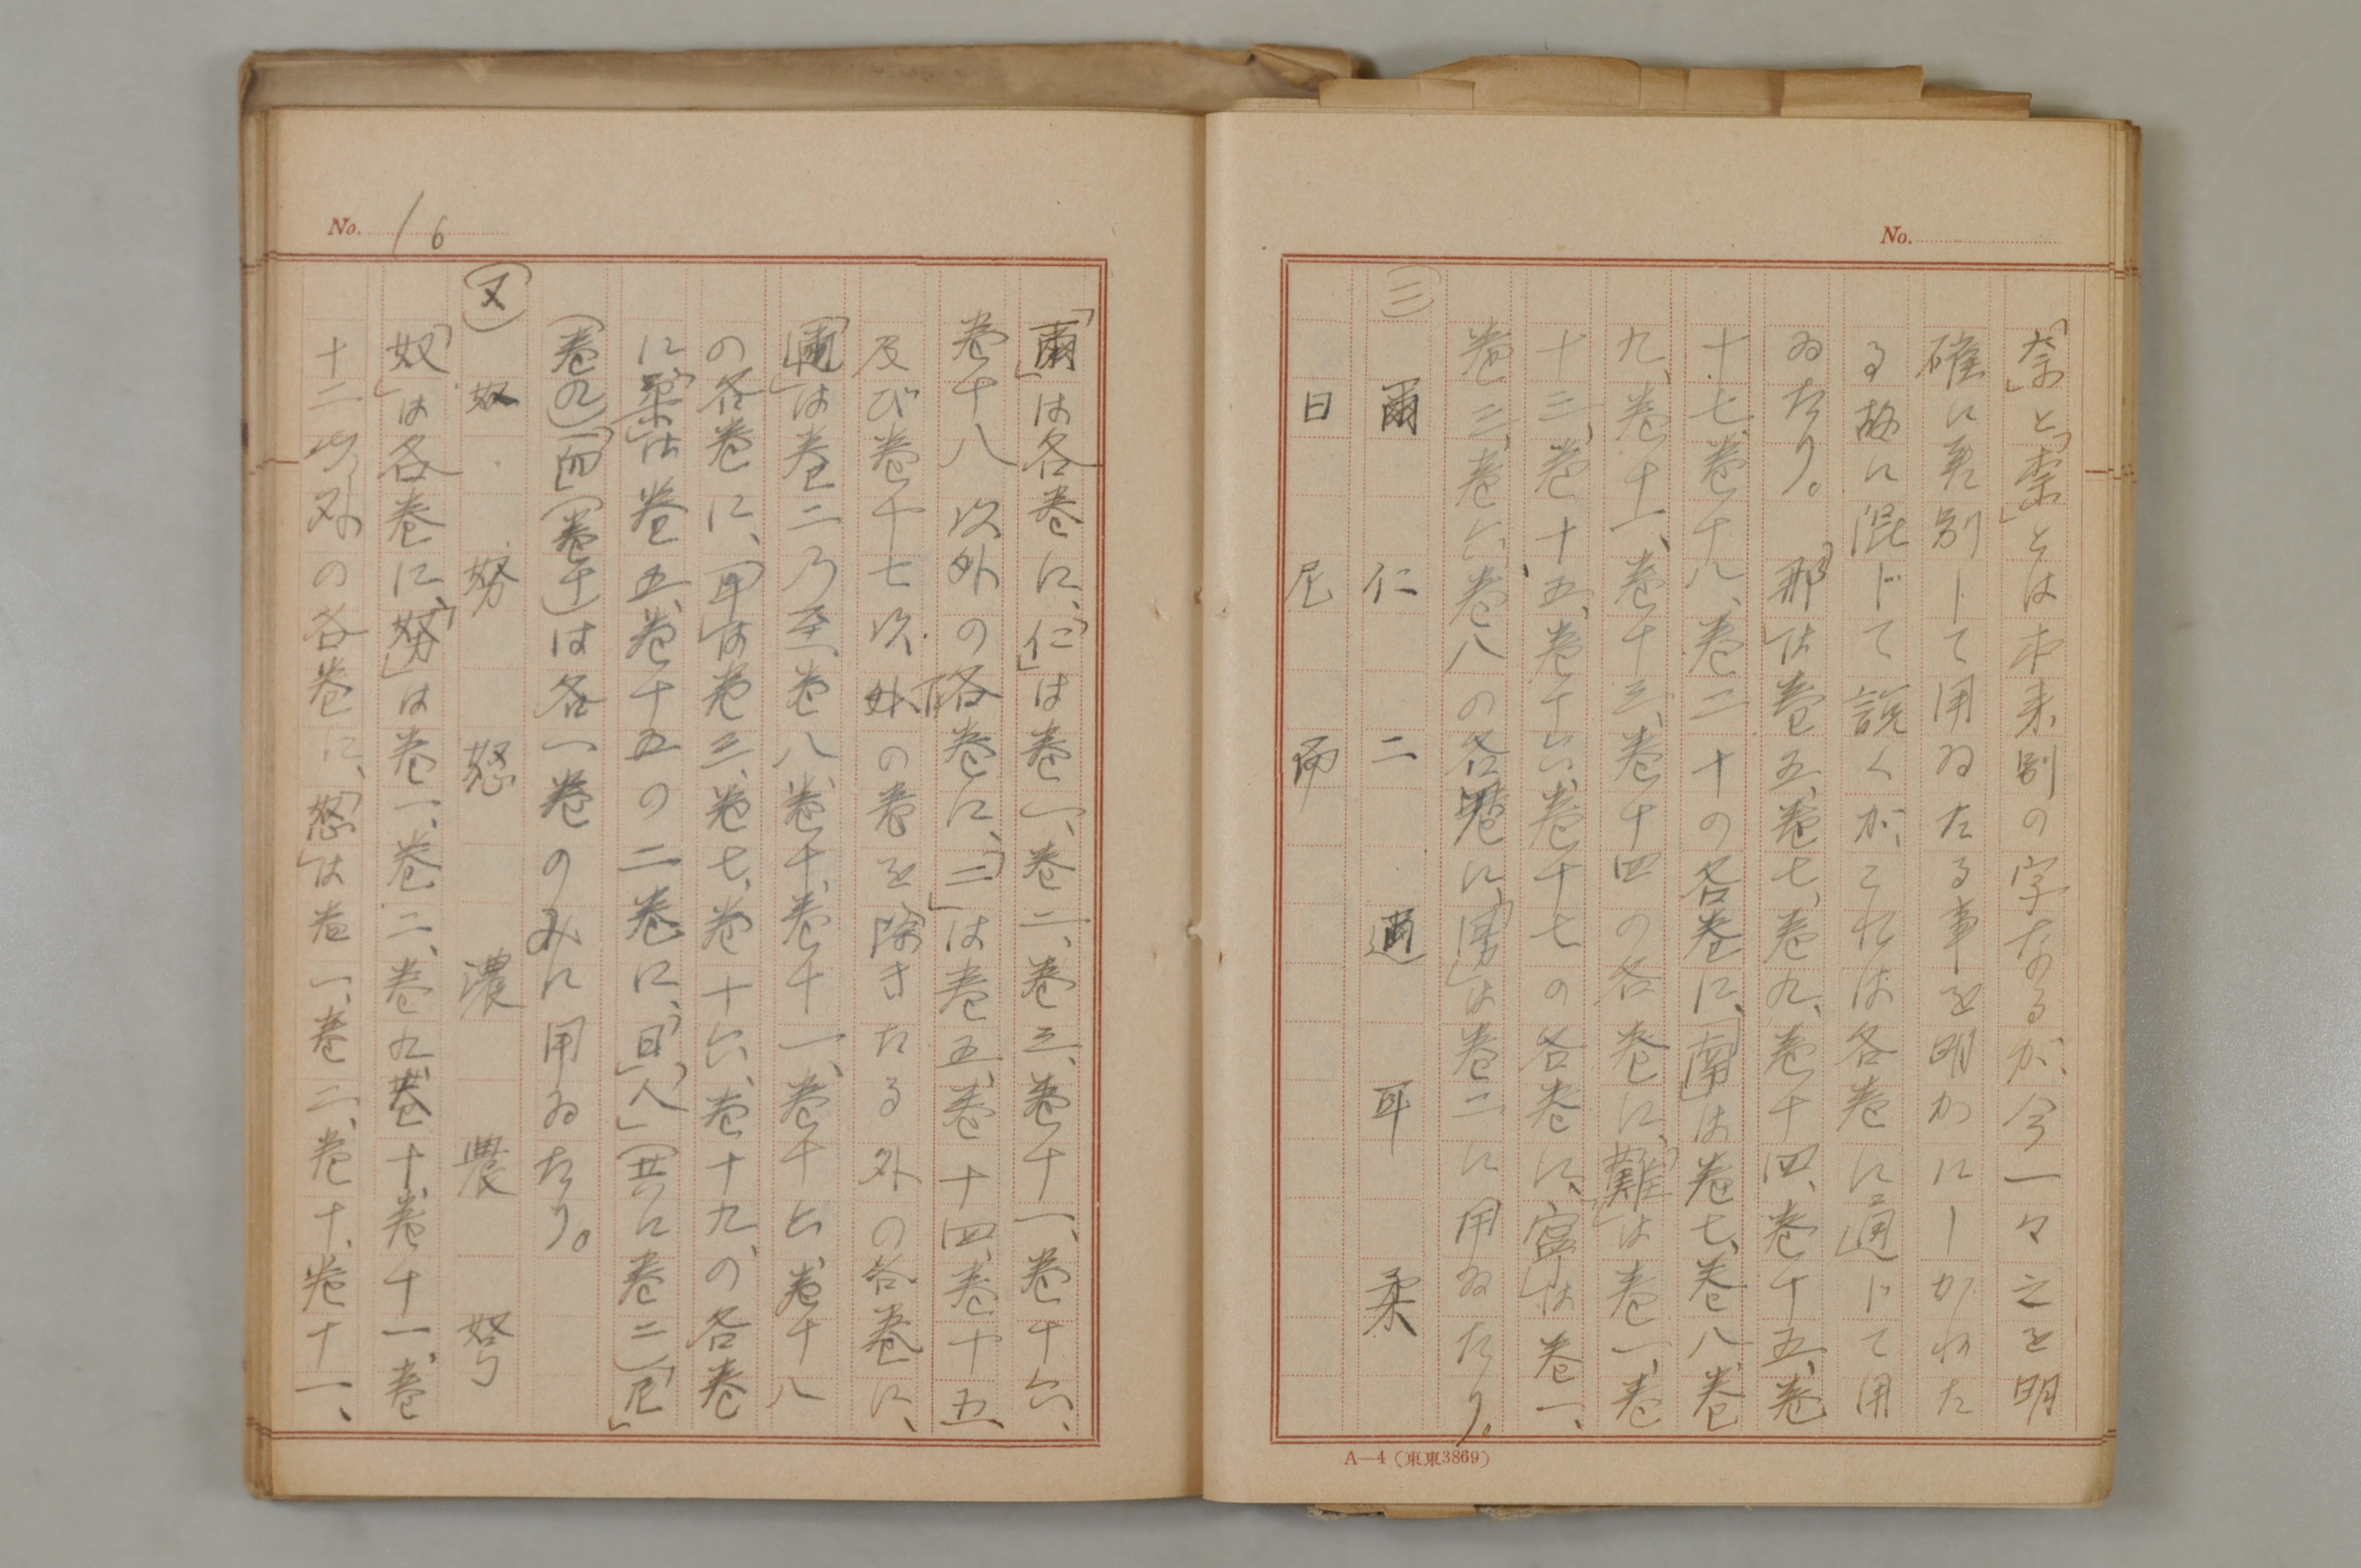 No.
「奈」と「柰」とは本来別の字なるが、今一々之を明
確に差別して用ゐたる事を明かにしがねた
る故に混じて説くが、これは各巻に通じて用
ゐたり。「那」は巻五、巻七、巻九、巻十四、巻十五、巻
十七、巻十八、巻二十の各巻に、「南」は巻七、巻八、巻
九、巻十一、巻十三、巻十四の各巻に、「難」は巻一、巻
十三、巻十五、巻十六、巻十七の各巻に、「寧」は巻一、
巻三、巻六、巻八の各巻に、「男」は巻二に用ゐたり。
(ニ)
爾 仁 二 邇 耳 柔
日 尼 而
A—4(東東3869)
No. 16
「爾」は各巻に、「仁」は巻一、巻二、巻三、巻十一、巻十六、
巻十八以外の各巻に、「二」は巻五、巻十四、巻十五
及び巻十七以外の巻を除きたる外の各巻に、
「邇」は巻二乃至巻八、巻十、巻十一、巻十七、巻十八
の各巻に、「耳」は巻三、巻七、巻十六、巻十九、の各巻
に、「柔」は巻五、巻十五の二巻に、「日」、「人」(共に巻二)「尼」
(巻九)「而」(巻十)は各一巻のみに用ゐたり。
(ヌ)
奴 努 怒 濃 農 弩
「奴」は各巻に、「努」は巻一、巻二、巻九、巻十、巻十一、巻
十二以外の各巻に、「怒」は巻一、巻二、巻十、巻十一、